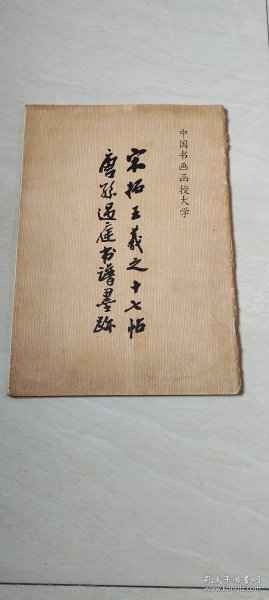 中国书画函授大学
宋拓王羲之十七帖
唐孙过庭书谱墨跡
孔夫子旧书网